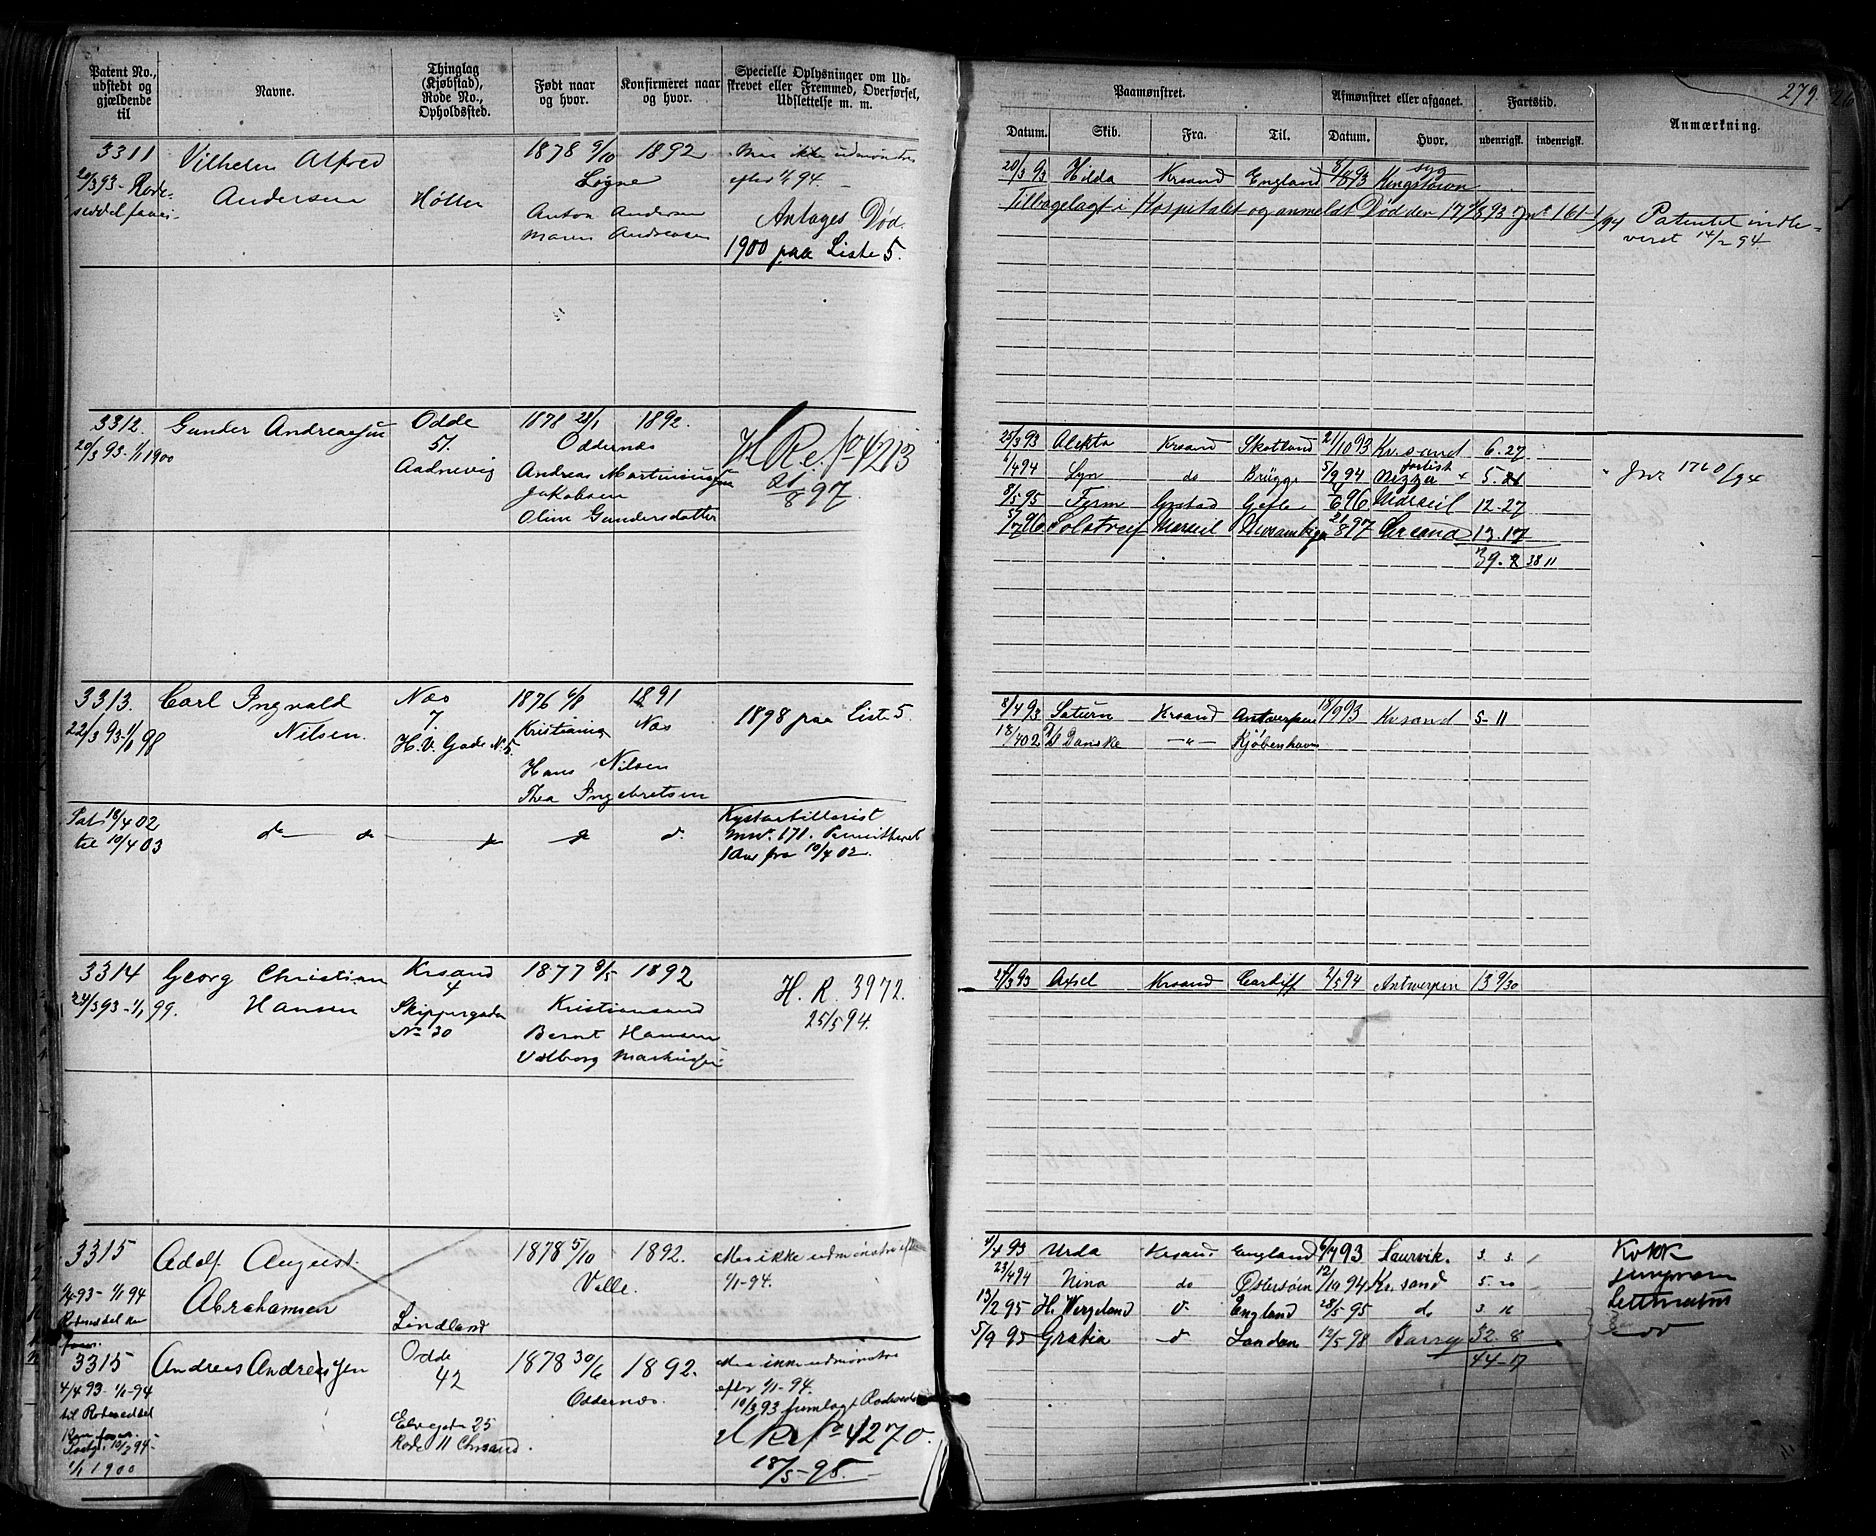 Patent No.,
udstedt og
gjældende
til
Navne.
Thinglag
(Kjøbstad),
Rode No.,
Opholdssted.
Født naar
og hvor.
Konfirmeret naar
og hvor.
Specielle Oplysninger om Ud-
skrevet eller Fremmed, Overførsel,
Udslettelse m. m.
3311
20/3 93- Rode-
seddel
Vilhelm Alfred
Andersen
Høllen
1878 9/10 1892
Søgne
Anton Andersen
Maren Andreasen
Maa ikke udmønstres
efter 1/1 94.
Antages Død.
1900 paa Liste 5.
3312.
20/3 93-1/1 1900
Gunder Andreassen
Odde
51.
Aadnevig
1878 28/1 1892.
Oddernes
Andreas Martiniussen
Jakobsen
Oline Gundersdatter
H Re. fo 4213
21/8 97.
3313.
22/3 93-1/1 98
Carl Ingvald
Nilsen.
Næs
7.
H. V. Gade No 5.
1876 6/8 1891
Kristiania Næs
Hans Nilsen
Thea Ingebretsen
1898 paa Liste 5.
Pat. 18/4 02
til 10/4 03
do do do do do
Kystartillerist
Mnr. 171. Permitteret
1 Aar fra 10/4 02.
3314
24/3 93-1/1 99.
Georg Christian
Hansen
Krsand
4
Skippergaden
No 30
1877 8/5 1892
Kristianssand
Bernt Hansen
Valborg
H. R. 3972.
25/5 94.
3315
4/4 93- 1/1 94
Adolf August.
Abrahamsen
Lindland
1878 5/10 1892.
Valle.
Maa ikke udmønstres efter
1/1-94.
3315
4/4 93-1/1-94
til Rodeseddel
1/1 1900
Andreas Andreassen
Odde
42
Elvegaden 25
Rode 11 Chrsand.
1878 30/6 1892.
Oddernes.
Maa ikke udmønstres
efter 1/1-94.
10/3 93 fremlagt Rodeseddel
H Re fo 4270.
18/5-98.
279.
Paamønstret.
Afmønstret eller afgaaet.
Fartstid.
Anmærkning.
Datum.
Skib.
Fra.
Til.
Datum.
Hvor.
udenrigsk.
indenrigsk.
20/3 93 Hilda Krsand England 3/8 93 syg Kingstown
Tilbagelagt i Hospitalet og anmeldt Død den 17/8 93 Jn 161/94 Patentet indle-
veret 14/2 94
25/3 93 Alekta Krsand Skotland 21/10 93 Kr.sand 6. 27
6/4 94 Lyn do Brügge 5/9 94 5. Jnr 1760/94
8/5 95 Ferm Gefle 4/6 96 Marseil 12. 27
5/7 96 Solstreif Marseil 21/8 97 Chrsand 13. 17
39. 38 11
8/4 93 Saturn Krsand Antwerpen 18/9 93 Krsand 5- 11
18/4 02 D/S Danske -"- Kjøbenhavn
27/3 93 Axsel Krsand Cardiff 2/5 94 Antwerpen 13 9/30
4/4 93 Urda Krsand. England 6/7 93 Laurvik. 3. 3. Kokk
23/4 94 Nina do Østersøen 12/10 94 Kr.sand 5. 20 Jungmann
13/2 95 H. Wergeland do England 28/5 95 do 3. 16 Lettmatros
5/9 95 Gratia do London 12/5 98 Barry 32. 8
44-17